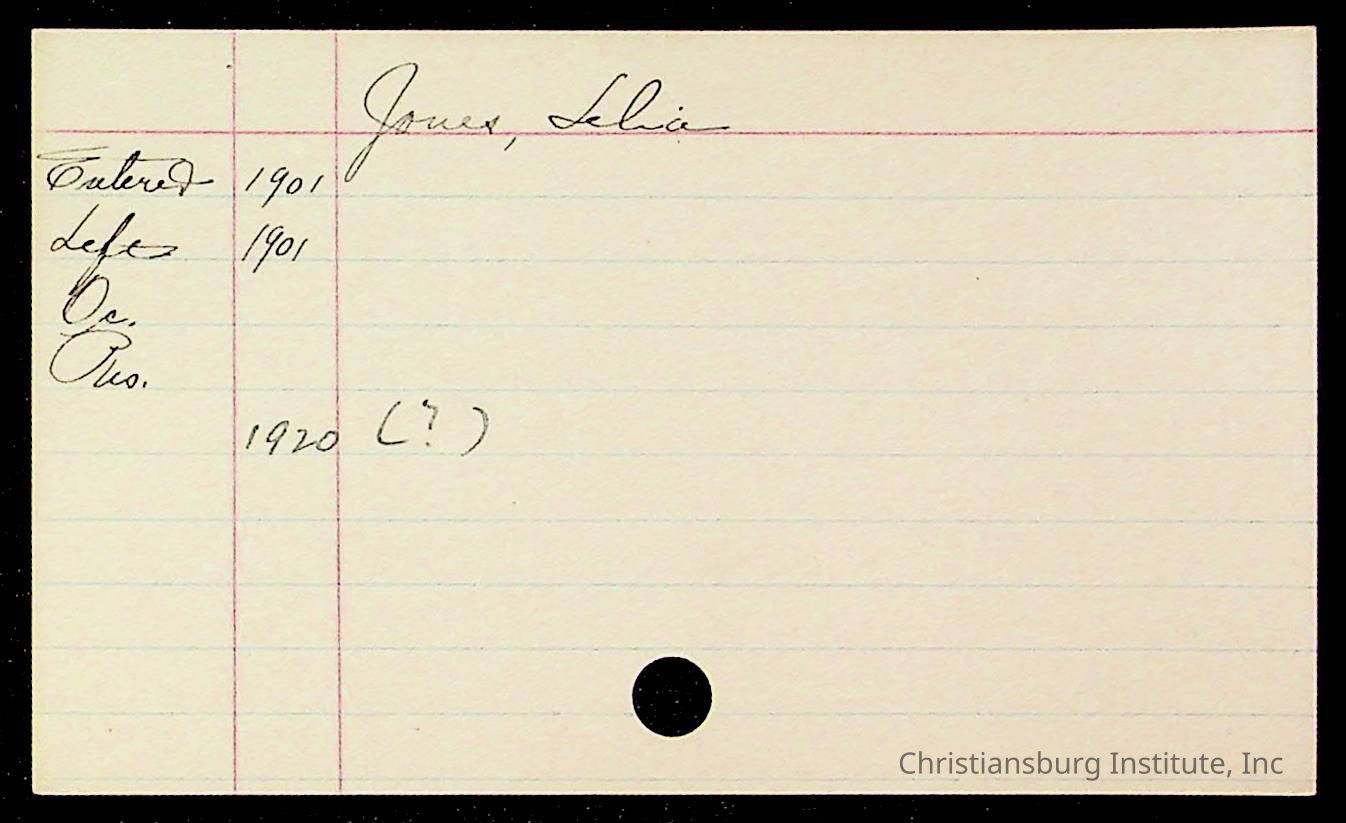 Jones, Lelia
Entered 1901
Left 1901
Oc.
Res.
1920 (?)
Christiansburg Institute, Inc